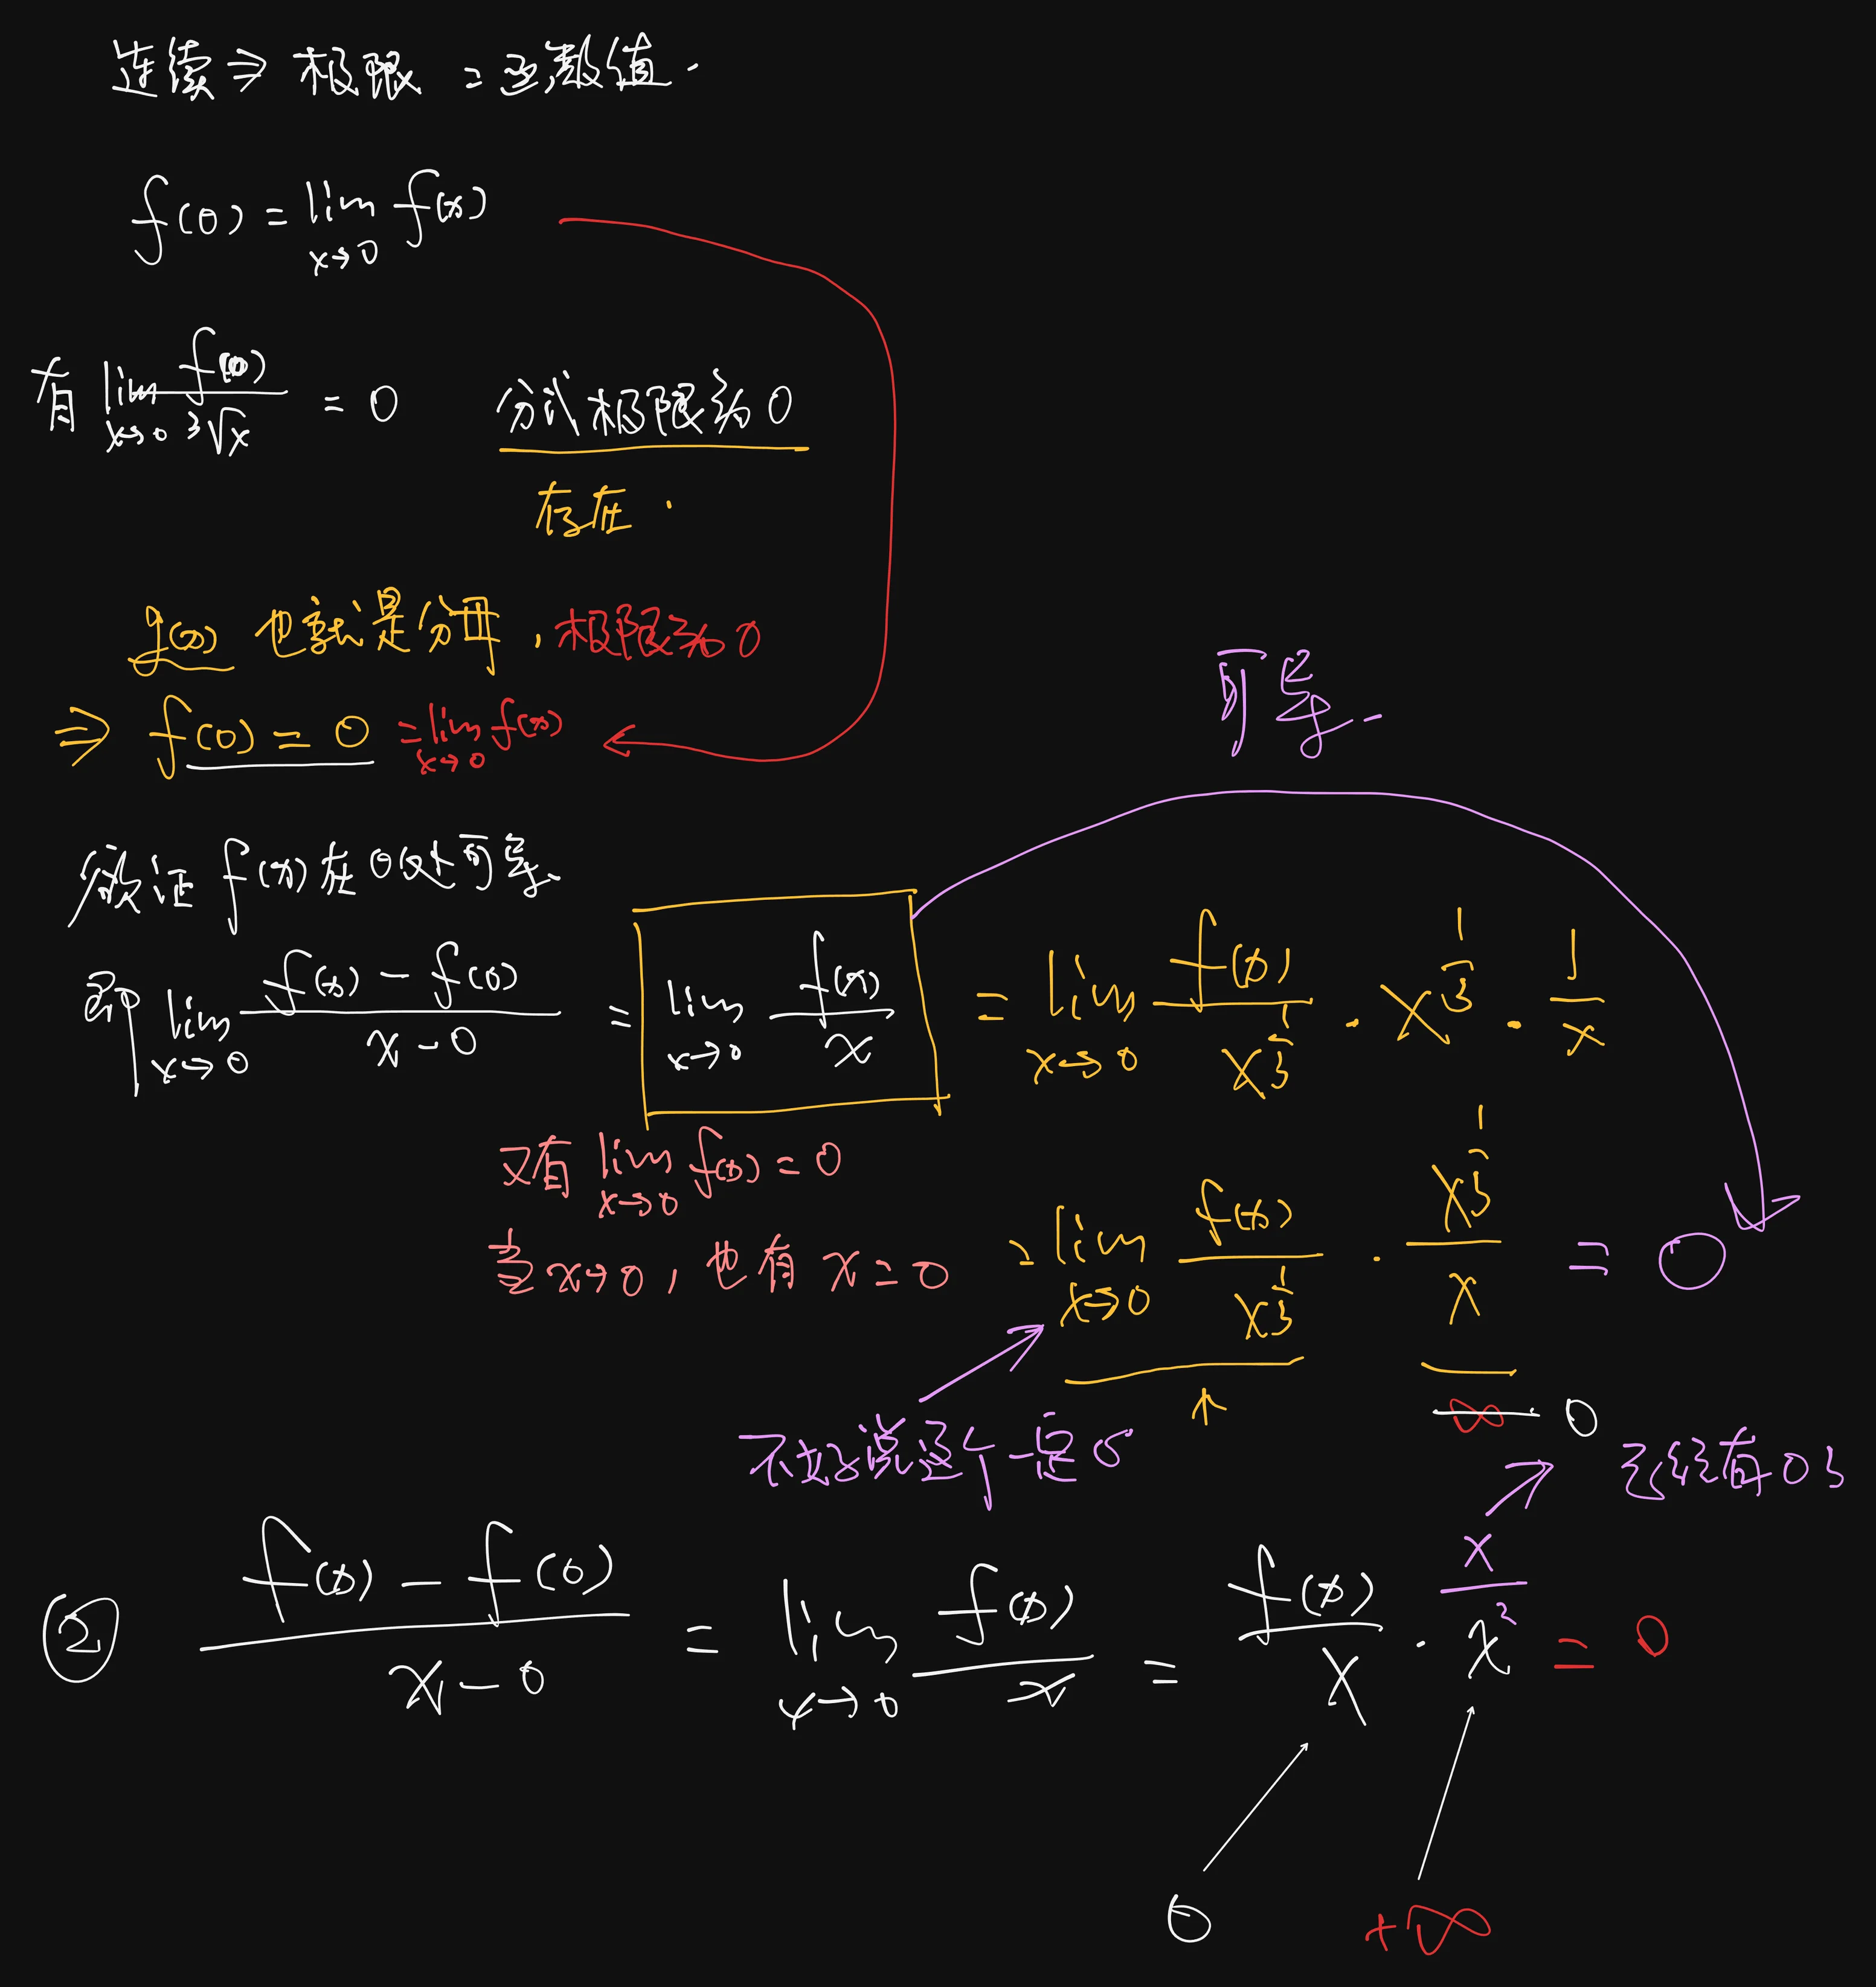 连续 ⇒ 极限 = 函数值.
f(0) = lim x→0 f(x)
有 lim x→0 f(x)/³√x = 0 分式极限为0
存在.
g(x) 也就是分母, 极限为0
⇒ f(0) = 0 = lim x→0 f(x)
可导
验证 f(x) 在0处可导
即 lim x→0 (f(x) - f(0))/(x - 0) = lim x→0 f(x)/x = lim x→0 f(x)/x^(1/3) · x^(1/3) · 1/x
又有 lim x→0 f(x) = 0
当 x→0, 也有 x = 0 = lim x→0 f(x)/x^(1/3) · x^(1/3)/x = 0
↑ ∞ 0
不好说这个一定0 已经有0了
② (f(x) - f(0))/(x - 0) = lim x→0 f(x)/x = f(x)/x · x = 0
x/x²
0 +∞